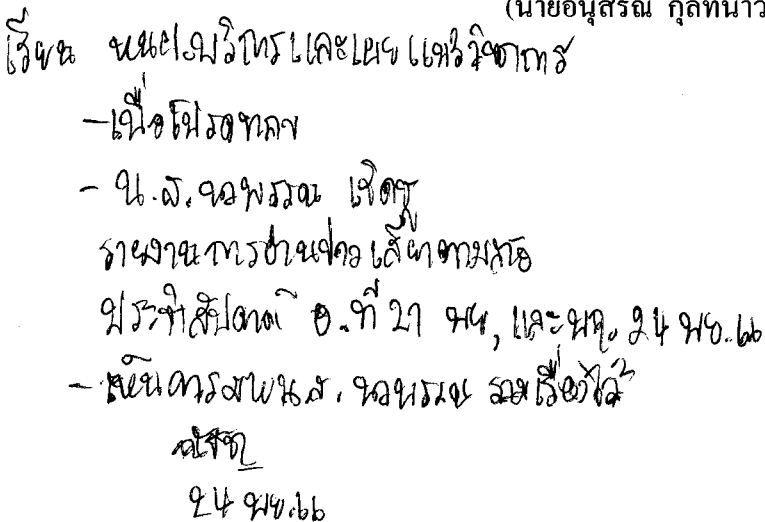 (นายอนุสรณ์ กุลทนาว
เรียน หนฝ.บริการและเผยแพร่วิชาการ
- เพื่อโปรดทราบ
- น.ส.นวพรรณ เชิดชู
รายงานการอ่านข่าวเสียงตามสาย
ประจำสัปดาห์ อ.ที่ 21 พย, และ พฤ. 24 พย.66
- เห็นควร น.ส. นวพรรณ รวมเรื่องไว้
24 พย.66